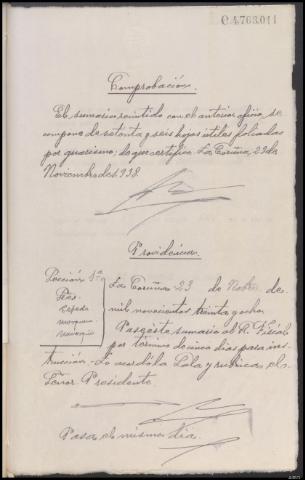 C.4.763.011
Comprobación.
El sumario remitido con el anterior oficio, se
compone de setenta y seis hojas útiles foliadas
por guarismo; lo que certifico. La Coruña, 23 de
Noviembre de 1938.
Providencia
Sección 1ª
Pres.
Cepeda
La Coruña 23 de Nobre. de
mil novecientos treinta y ocho.
Pase este sumario al Sr. Fiscal
por término de cinco dias para ins-
trucción. Lo acordó la Sala y rubrica el
Señor Presidente.
Pasa el mismo dia.